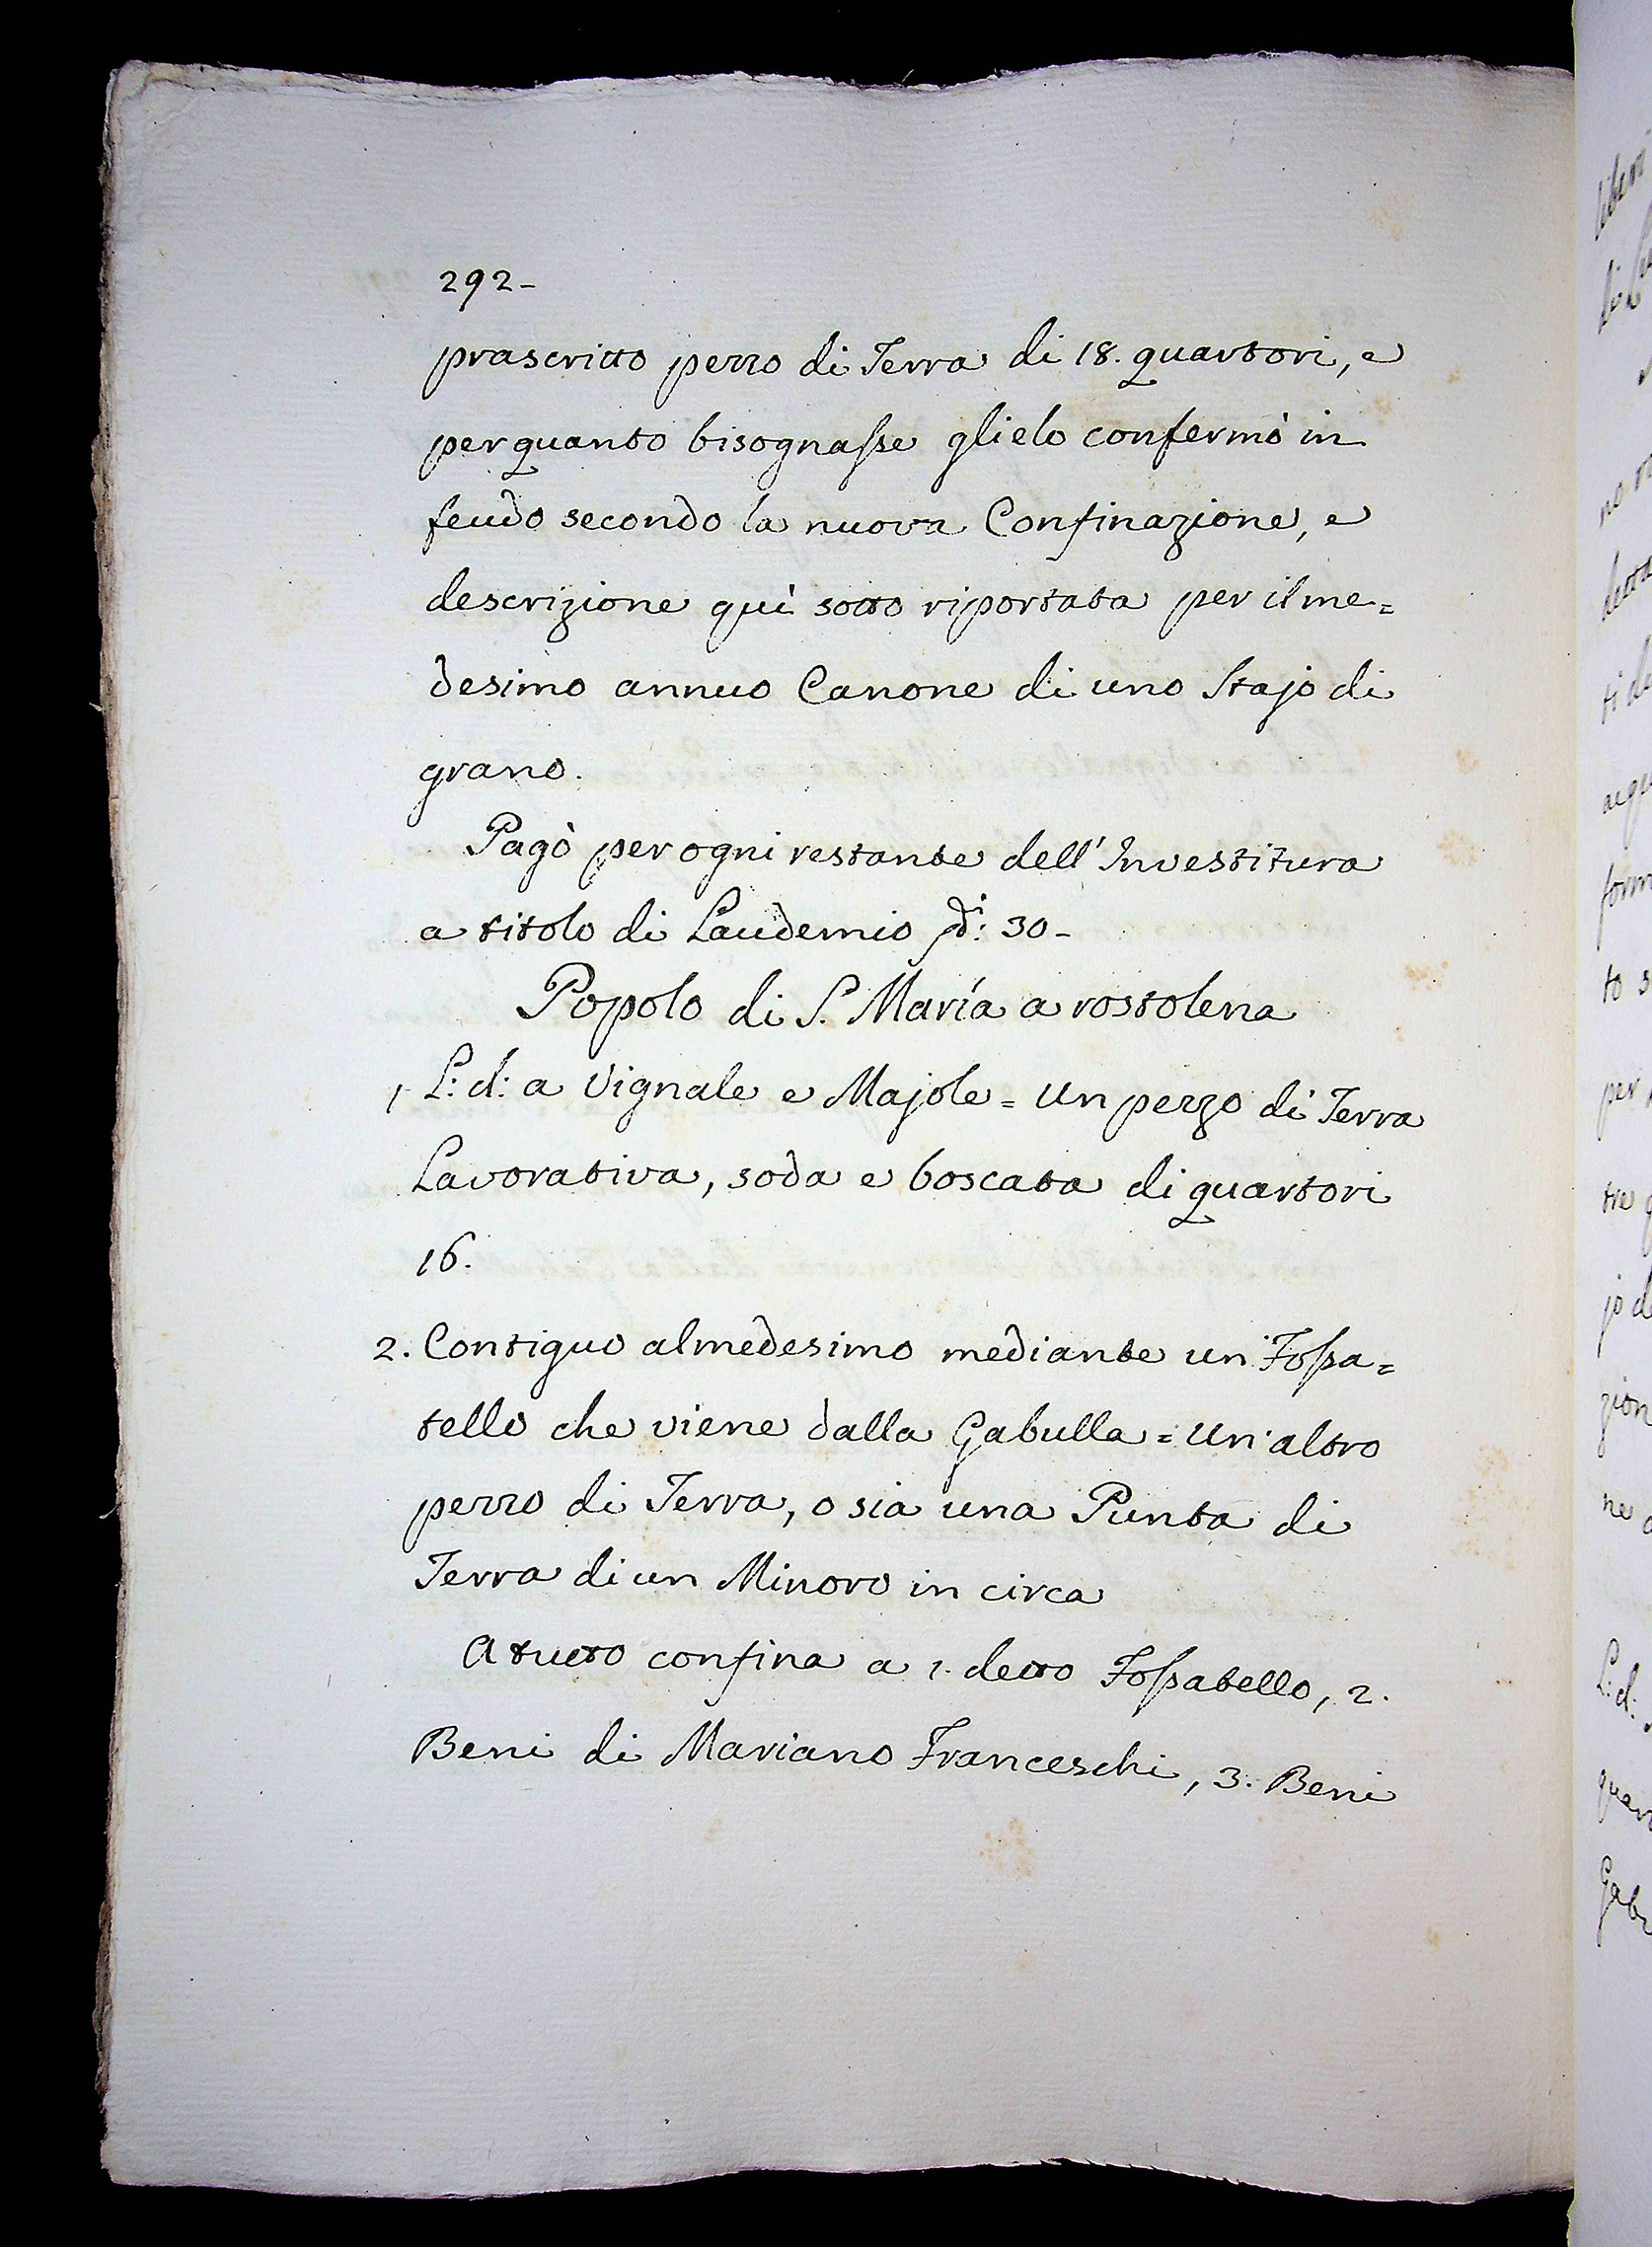 292-
prascritto pezzo di Terra di 18. quartori, e
per quanto bisognasse glielo confermò in
feudo secondo la nuova Confinazione, e
descrizione quì sotto riportata per il me=
desimo annuo Canone di uno Stajo di
grano.
Pagò per ogni restante dell'Investitura
a titolo di Laudemio 30-
Popolo di S. Maria a rostolena
1. L: d: a Vignale e Majole = Un pezzo di Terra
Lavorativa, soda e boscata di quartori
16.
2. Contiguo al medesimo mediante un Fossa=
tello che viene dalla Gabulla = Un'altro
pezzo di Terra, o sia una Punta di
Terra di un Minoro in circa
A tutto confina a 1. detto Fossatello, 2.
Beni di Mariano Franceschi, 3. Beni